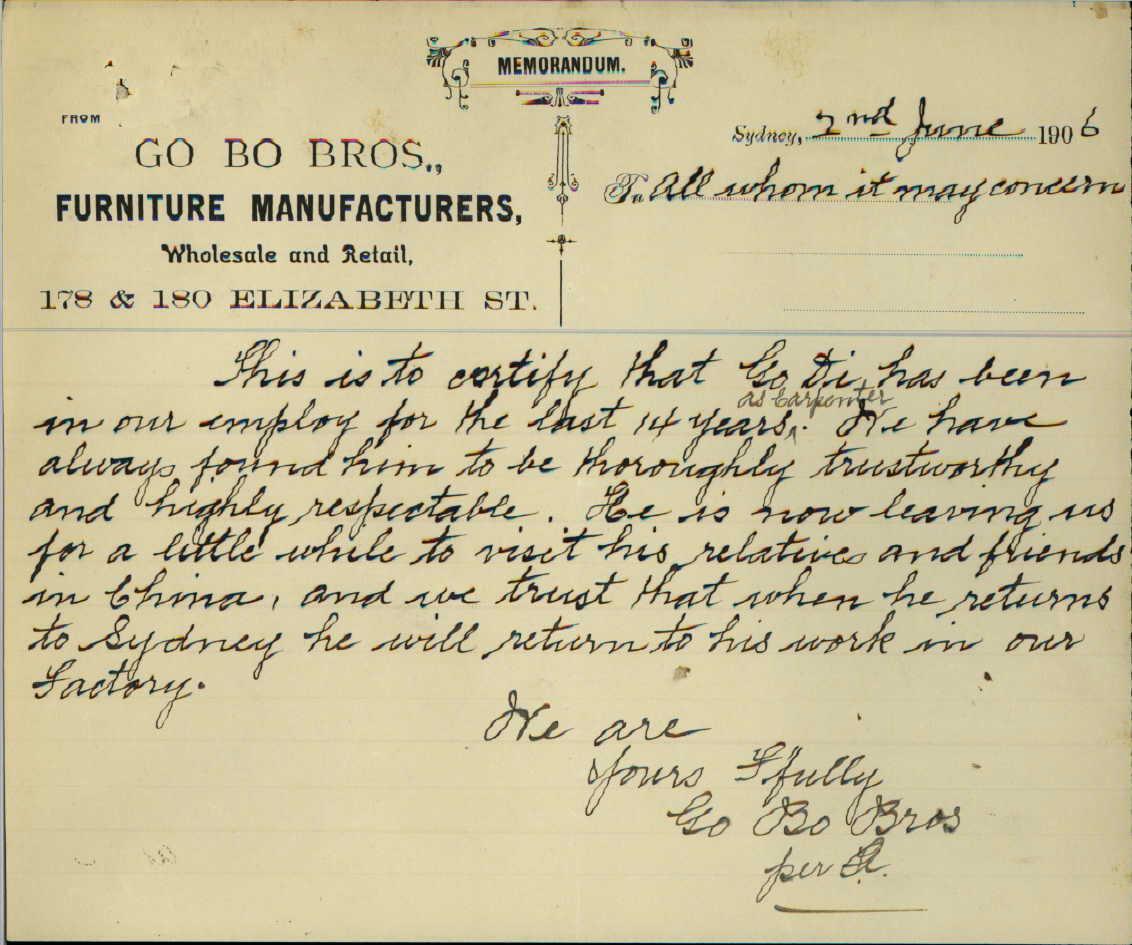 MEMORANDUM.
FROM
GO BO BROS.,
FURNITURE MANUFACTURERS,
Wholesale and Retail,
178 & 180 ELIZABETH ST.
Sydney, 2nd June 1906
To All whom it may concern
This is to certify that Go Di, has been
as Carpenter
in our employ for the last 14 years. We have
always found him to be thoroughly trustworthy
and highly respectable. He is now leaving us
for a little while to visit his relatives and friends
in China, and we trust that when he returns
to Sydney he will return to his work in our
Factory.
We are
Yours Ffully
Go Bo Bros
per